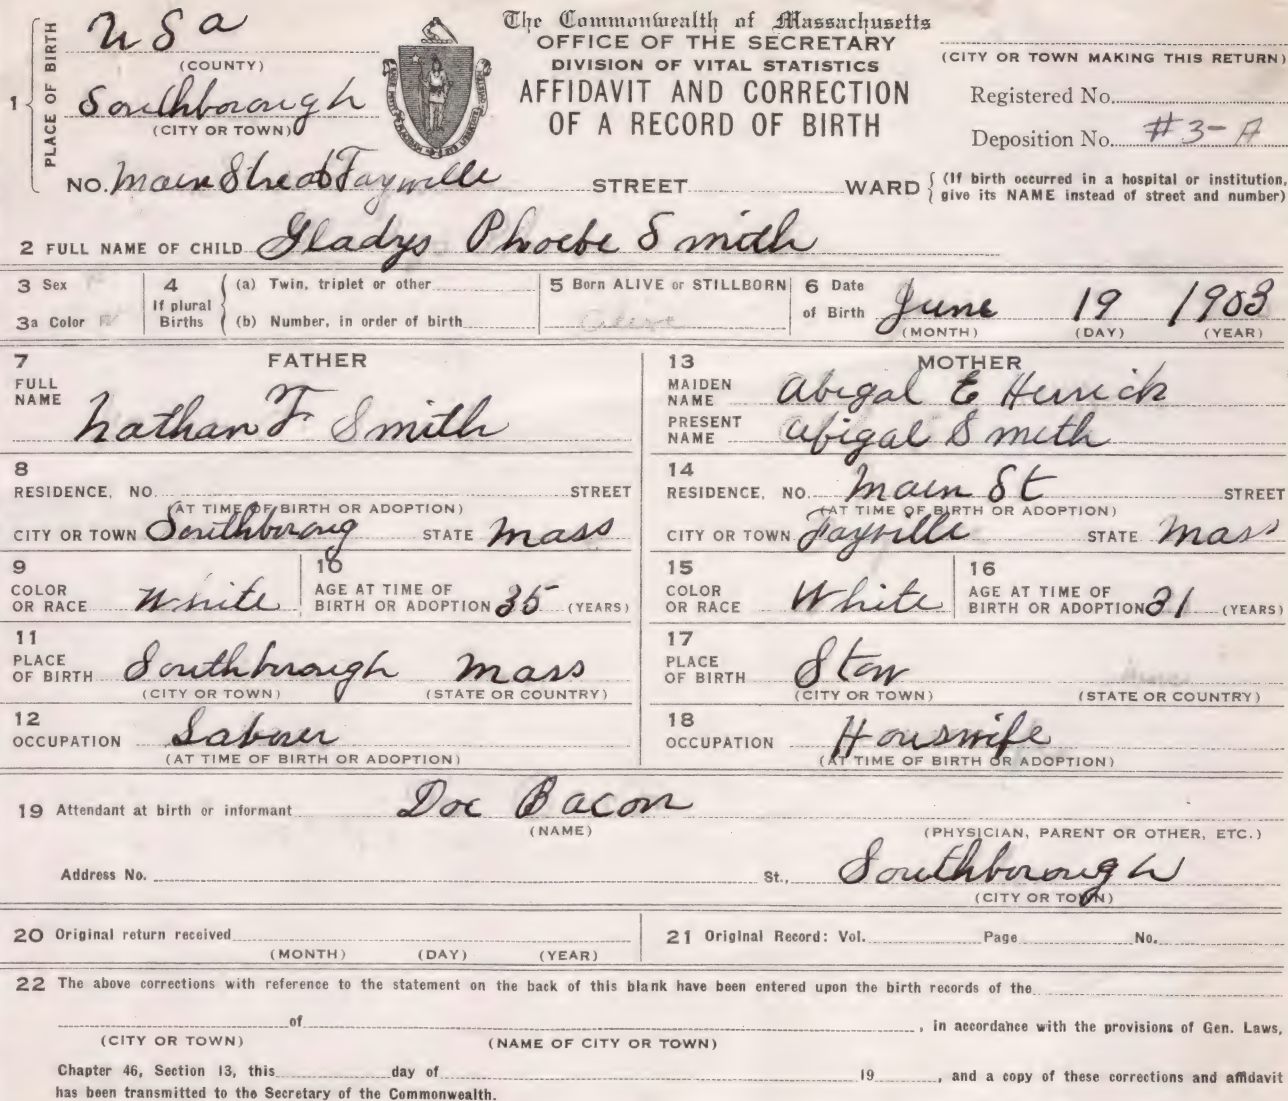 The Commonwealth of Massachusetts
OFFICE OF THE SECRETARY
DIVISION OF VITAL STATISTICS
AFFIDAVIT AND CORRECTION
OF A RECORD OF BIRTH
1 PLACE OF BIRTH
USa
(COUNTY)
Southborough
(CITY OR TOWN)
(CITY OR TOWN MAKING THIS RETURN)
Registered No.
Deposition No. #3-A
NO. Main Street Fayville STREET WARD (If birth occurred in a hospital or institution, give its NAME instead of street and number)
2 FULL NAME OF CHILD Gladys Phoebe Smith
3 Sex
3a Color
4 If plural Births
(a) Twin, triplet or other
(b) Number, in order of birth
5 Born ALIVE or STILLBORN
alive
6 Date of Birth June 19 1903
(MONTH) (DAY) (YEAR)
7 FATHER
FULL NAME
Nathan F Smith
8
RESIDENCE, NO. STREET
(AT TIME OF BIRTH OR ADOPTION)
CITY OR TOWN Southboroug STATE Mass
9
COLOR OR RACE White
10
AGE AT TIME OF BIRTH OR ADOPTION 35 (YEARS)
11
PLACE OF BIRTH Southborough Mass
(CITY OR TOWN) (STATE OR COUNTRY)
12
OCCUPATION Laborer
(AT TIME OF BIRTH OR ADOPTION)
13 MOTHER
MAIDEN NAME Abigal E Herrick
PRESENT NAME Abigal Smith
14
RESIDENCE, NO. Main St STREET
(AT TIME OF BIRTH OR ADOPTION)
CITY OR TOWN Fayville STATE Mass
15
COLOR OR RACE White
16
AGE AT TIME OF BIRTH OR ADOPTION 31 (YEARS)
17
PLACE OF BIRTH Stow
(CITY OR TOWN) (STATE OR COUNTRY)
18
OCCUPATION Houswife
(AT TIME OF BIRTH OR ADOPTION)
19 Attendant at birth or informant Doc Bacon
(NAME) (PHYSICIAN, PARENT OR OTHER, ETC.)
Address No. St., Southborough
(CITY OR TOWN)
20 Original return received
(MONTH) (DAY) (YEAR)
21 Original Record: Vol. Page No.
22 The above corrections with reference to the statement on the back of this blank have been entered upon the birth records of the
of , in accordance with the provisions of Gen. Laws,
(CITY OR TOWN) (NAME OF CITY OR TOWN)
Chapter 46, Section 13, this day of 19 , and a copy of these corrections and affidavit
has been transmitted to the Secretary of the Commonwealth.